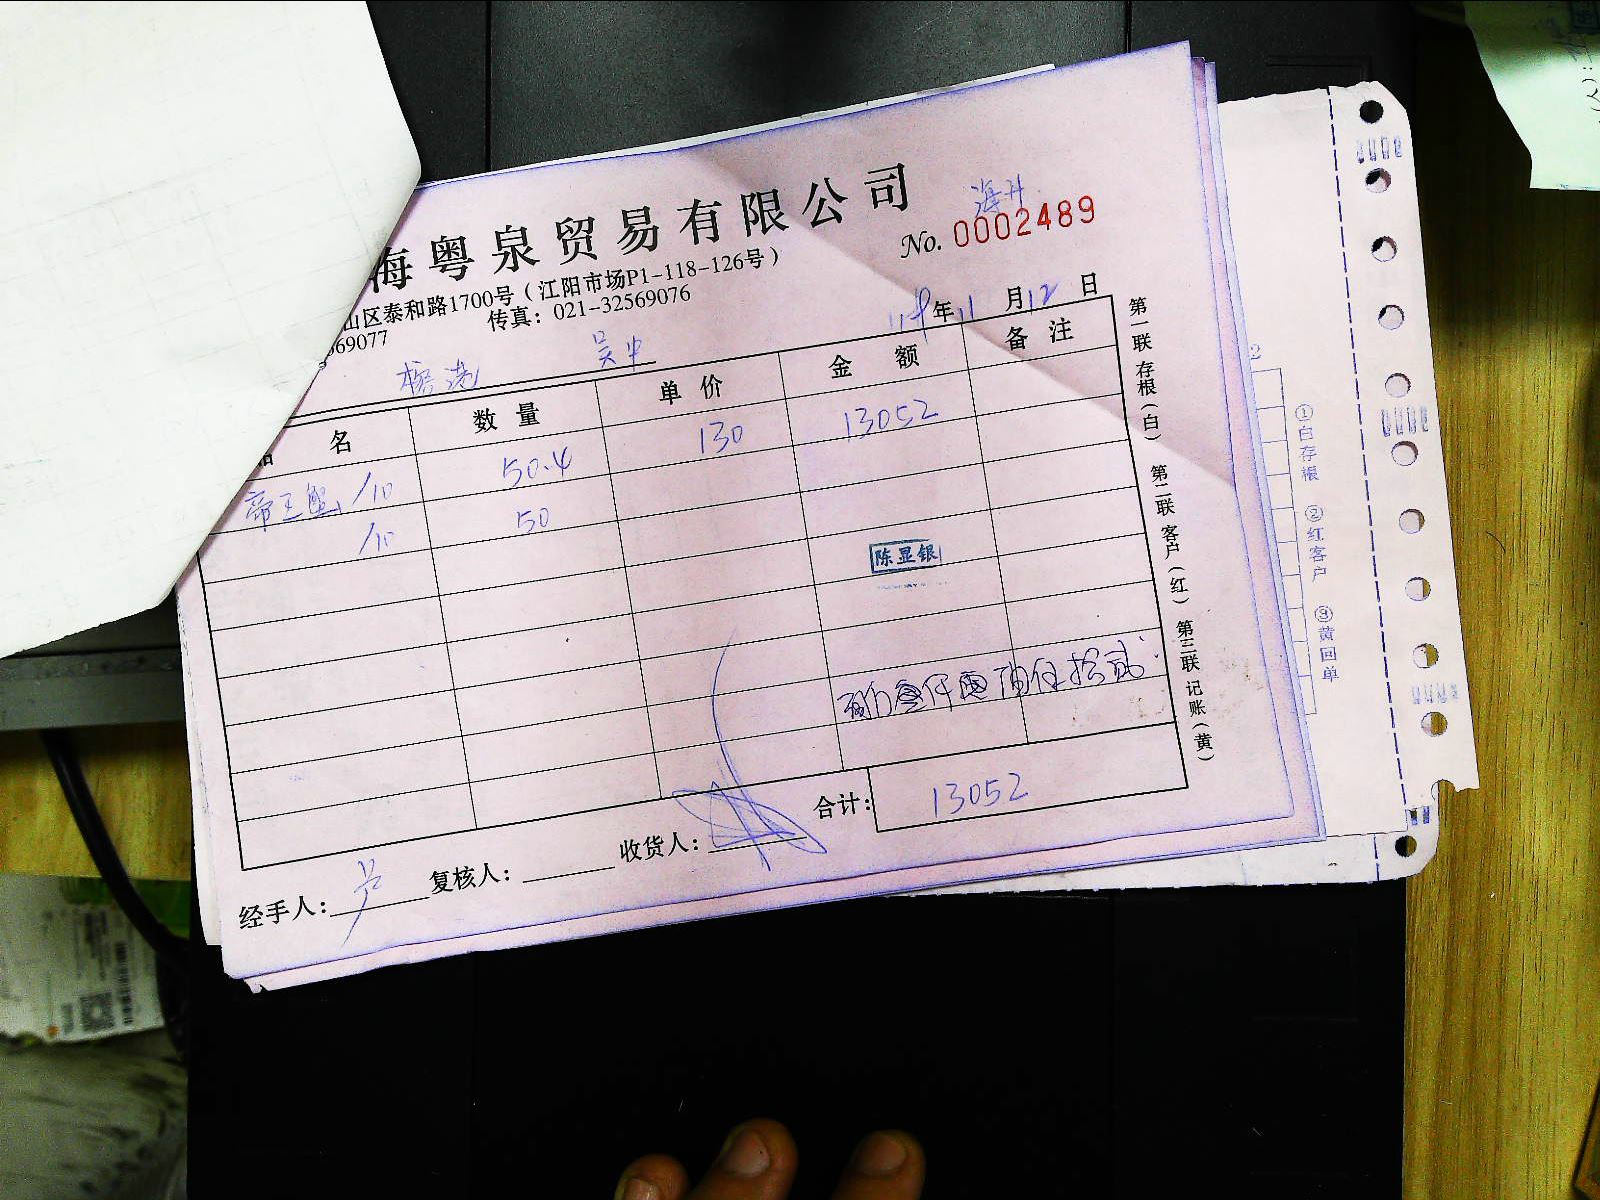 海粤泉贸易有限公司
海升
No. 0002489
山区泰和路1700号（江阳市场P1-118-126号）
569077 传真：021-32569076
年11月12日
吴中
名 数量 单价 金额 备注
帝王蟹/10 50.4 130 13052
/10 50
陈显银
合计： 13052
经手人： 复核人： 收货人：
第一联 存根（白） 第二联 客户（红） 第三联 记账（黄）
2
①白存根 ②红客户 ③黄回单